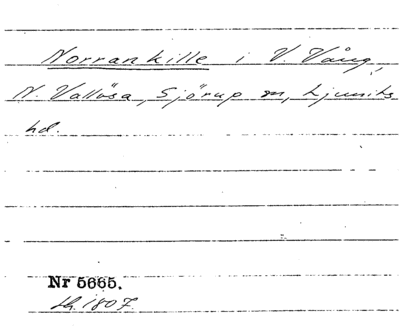 Norrankille i V. Vång,
N. Vallösa, Sjörup sn, Ljunits
hd.
Nr 5665.
Sk 1807